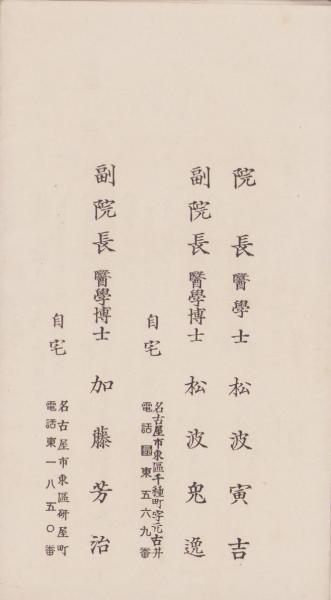 院長醫學士 松波寅吉
副院長醫學博士 松波兎逸
自宅
名古屋市東區千種町字元古井
電話圖東五六九番
副院長醫學博士 加藤芳治
自宅
名古屋市東區研屋町
電話東一八五〇番